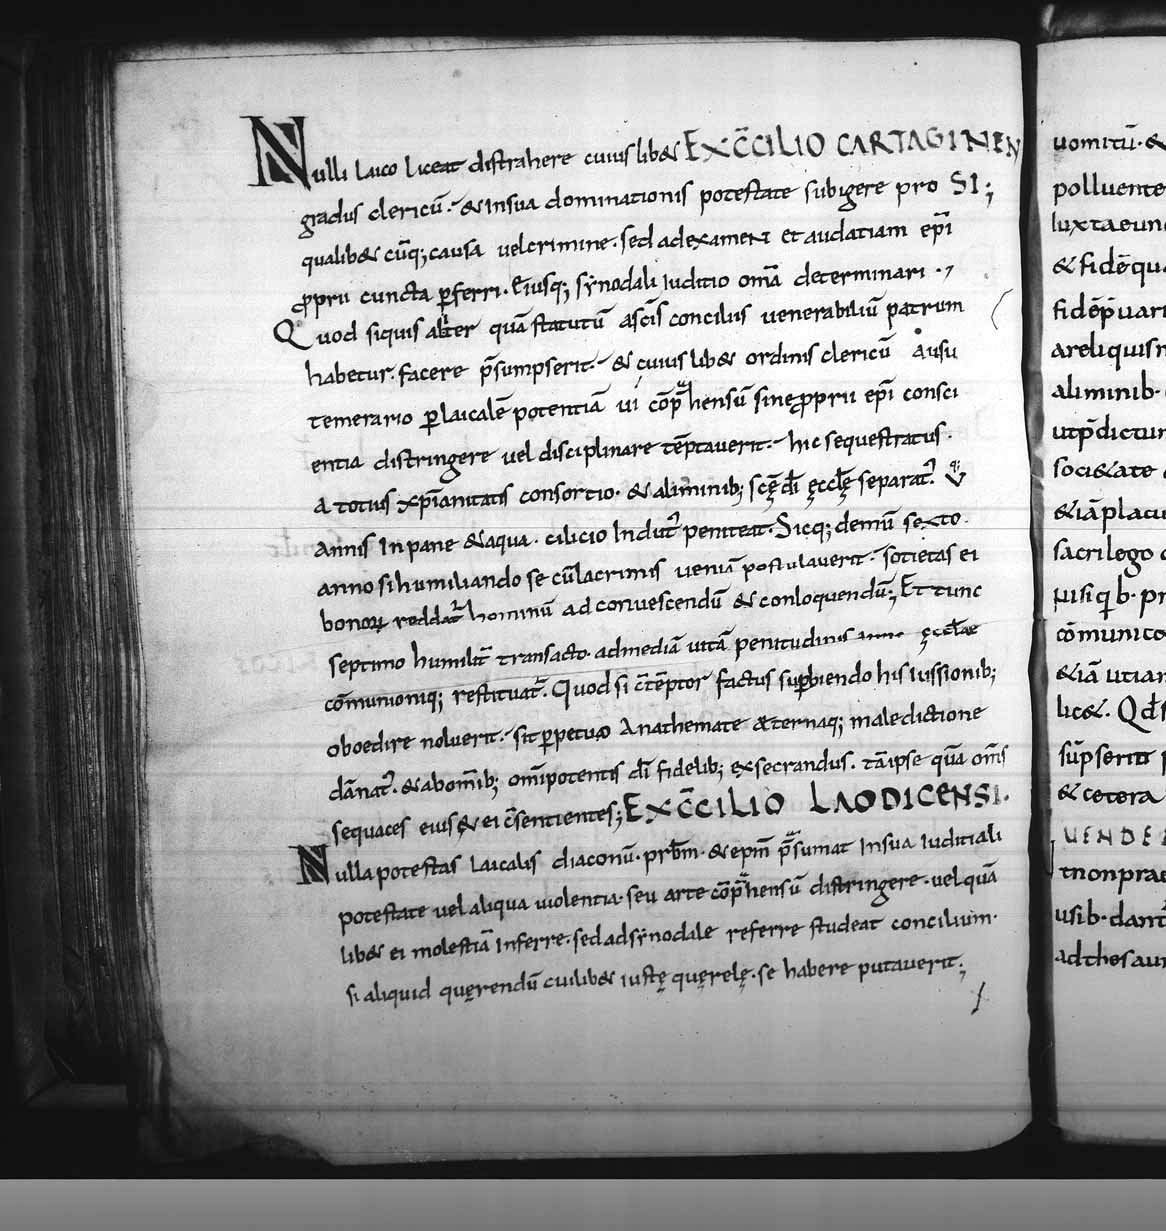 Nulli laico liceat distrahere cuius lib& EX C̄CILIO CARTAGINEN
gradus clericū. & in sua dominationis potestate subigere pro SI;
qualib& cūq; causa uel crimine. sed ad examen et audatiam ep̄i
ꝓprii cuncta ꝑferri. Eiusq; sẏnodali iuditio om̄a determinari.
Quod siquis aliter quā statutū a sc̄is conciliis uenerabiliū patrum
habetur. facere p̄sumpserit. & cuius lib& ordinis clericū ausu
temerario ꝑ laicalē potentiā ui cōp̄hensū sine ꝓprii ep̄i consci
entia distringere uel disciplinare tēptauerit. hic sequestratus.
a totius xp̄ianitatis consortio. & a liminib; sc̄ę d̄i ęccłę separat᷒. V
annis in pane & aqua. cilicio indut᷒ peniteat. Sicq; demū sexto.
anno si humiliando se cū lacrimis ueniā postulauerit. societas ei
bonoꝝ reddat᷒ hominū ad conuescendū & conloquendū; Et tunc
septimo humilit᷒ transacto. ad mediā uitā penitudinis ęccłae
cōmunioniq; restituat᷒. Quod si c̄tēptor factus suꝑbiendo his iussionib;
oboedire noluerit. sit ꝑpetuo Anathemate & ternaq; maledictione
dānat᷒. & ab om̄ib; om̄ipotentis d̄i fidelib; exsecrandus. tā ipse quā om̄s
sequaces eius & ei c̄sentientes; EX C̄CILIO LAODICENSI.
Nulla potestas laicalis diaconū. prb̄m. & ep̄m p̄sumat in sua iuditiali
potestate uel aliqua uiolentia. seu arte cōp̄hensū distringere. uel quā
lib& ei molestiā inferre. sed ad sẏnodale referre studeat concilium.
si aliquid quęrendū cuilib& iustę quęrelę. se habere putauerit;
uomitū. &
polluente
luxta eun
& fidē qu
fidē p̄uari
a reliquis
a liminib.
ut p̄dictu
soci&ate
& iā placu
sacrilego
nisi qꝗb. pr
cōmunico
& iā utian
lic&. Qd̄ s
sūpserit
& cetera
UENDE
t non prae
usib. dant᷒
ad thesaur